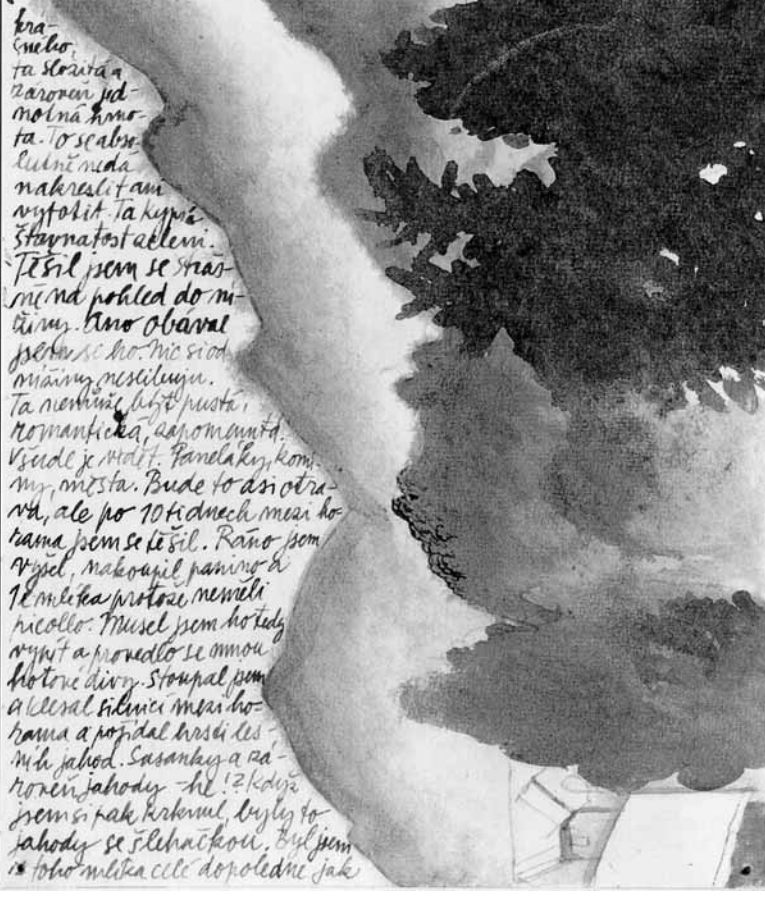 krá-
sného,
ta složitá a
zároveň jed-
notná hmo-
ta. To se abso-
lutně nedá
nakreslit ani
vyfotit. Ta kyprá
šťavnatost zeleni.
Těšil jsem se straš-
ně na pohled do ní-
žiny. Ano obával
jsem se ho. Nic si od
nížiny neslibuju.
Ta nemůže být pustá,
romantická, zapomenutá.
Všude je vidět. Paneláky, komí-
ny, města. Bude to asi otra-
va, ale po 10 tidnech mezi ho-
rama jsem se těšil. Ráno jsem
vyšel, nakoupil panino a
1l mlíka protože neměli
picollo. Musel jsem ho tedy
vypít a provedlo se mnou
hotové divy. Stoupal jsem
a klesal silnicí mezi ho-
rama a pojídal hrsti les-
ních jahod. Sasanky a zá-
roveň jahody - he!? Když
jsem si pak krknul, byly to
jahody se šlehačkou. Byl jsem
z toho mlíka celé dopoledne jak